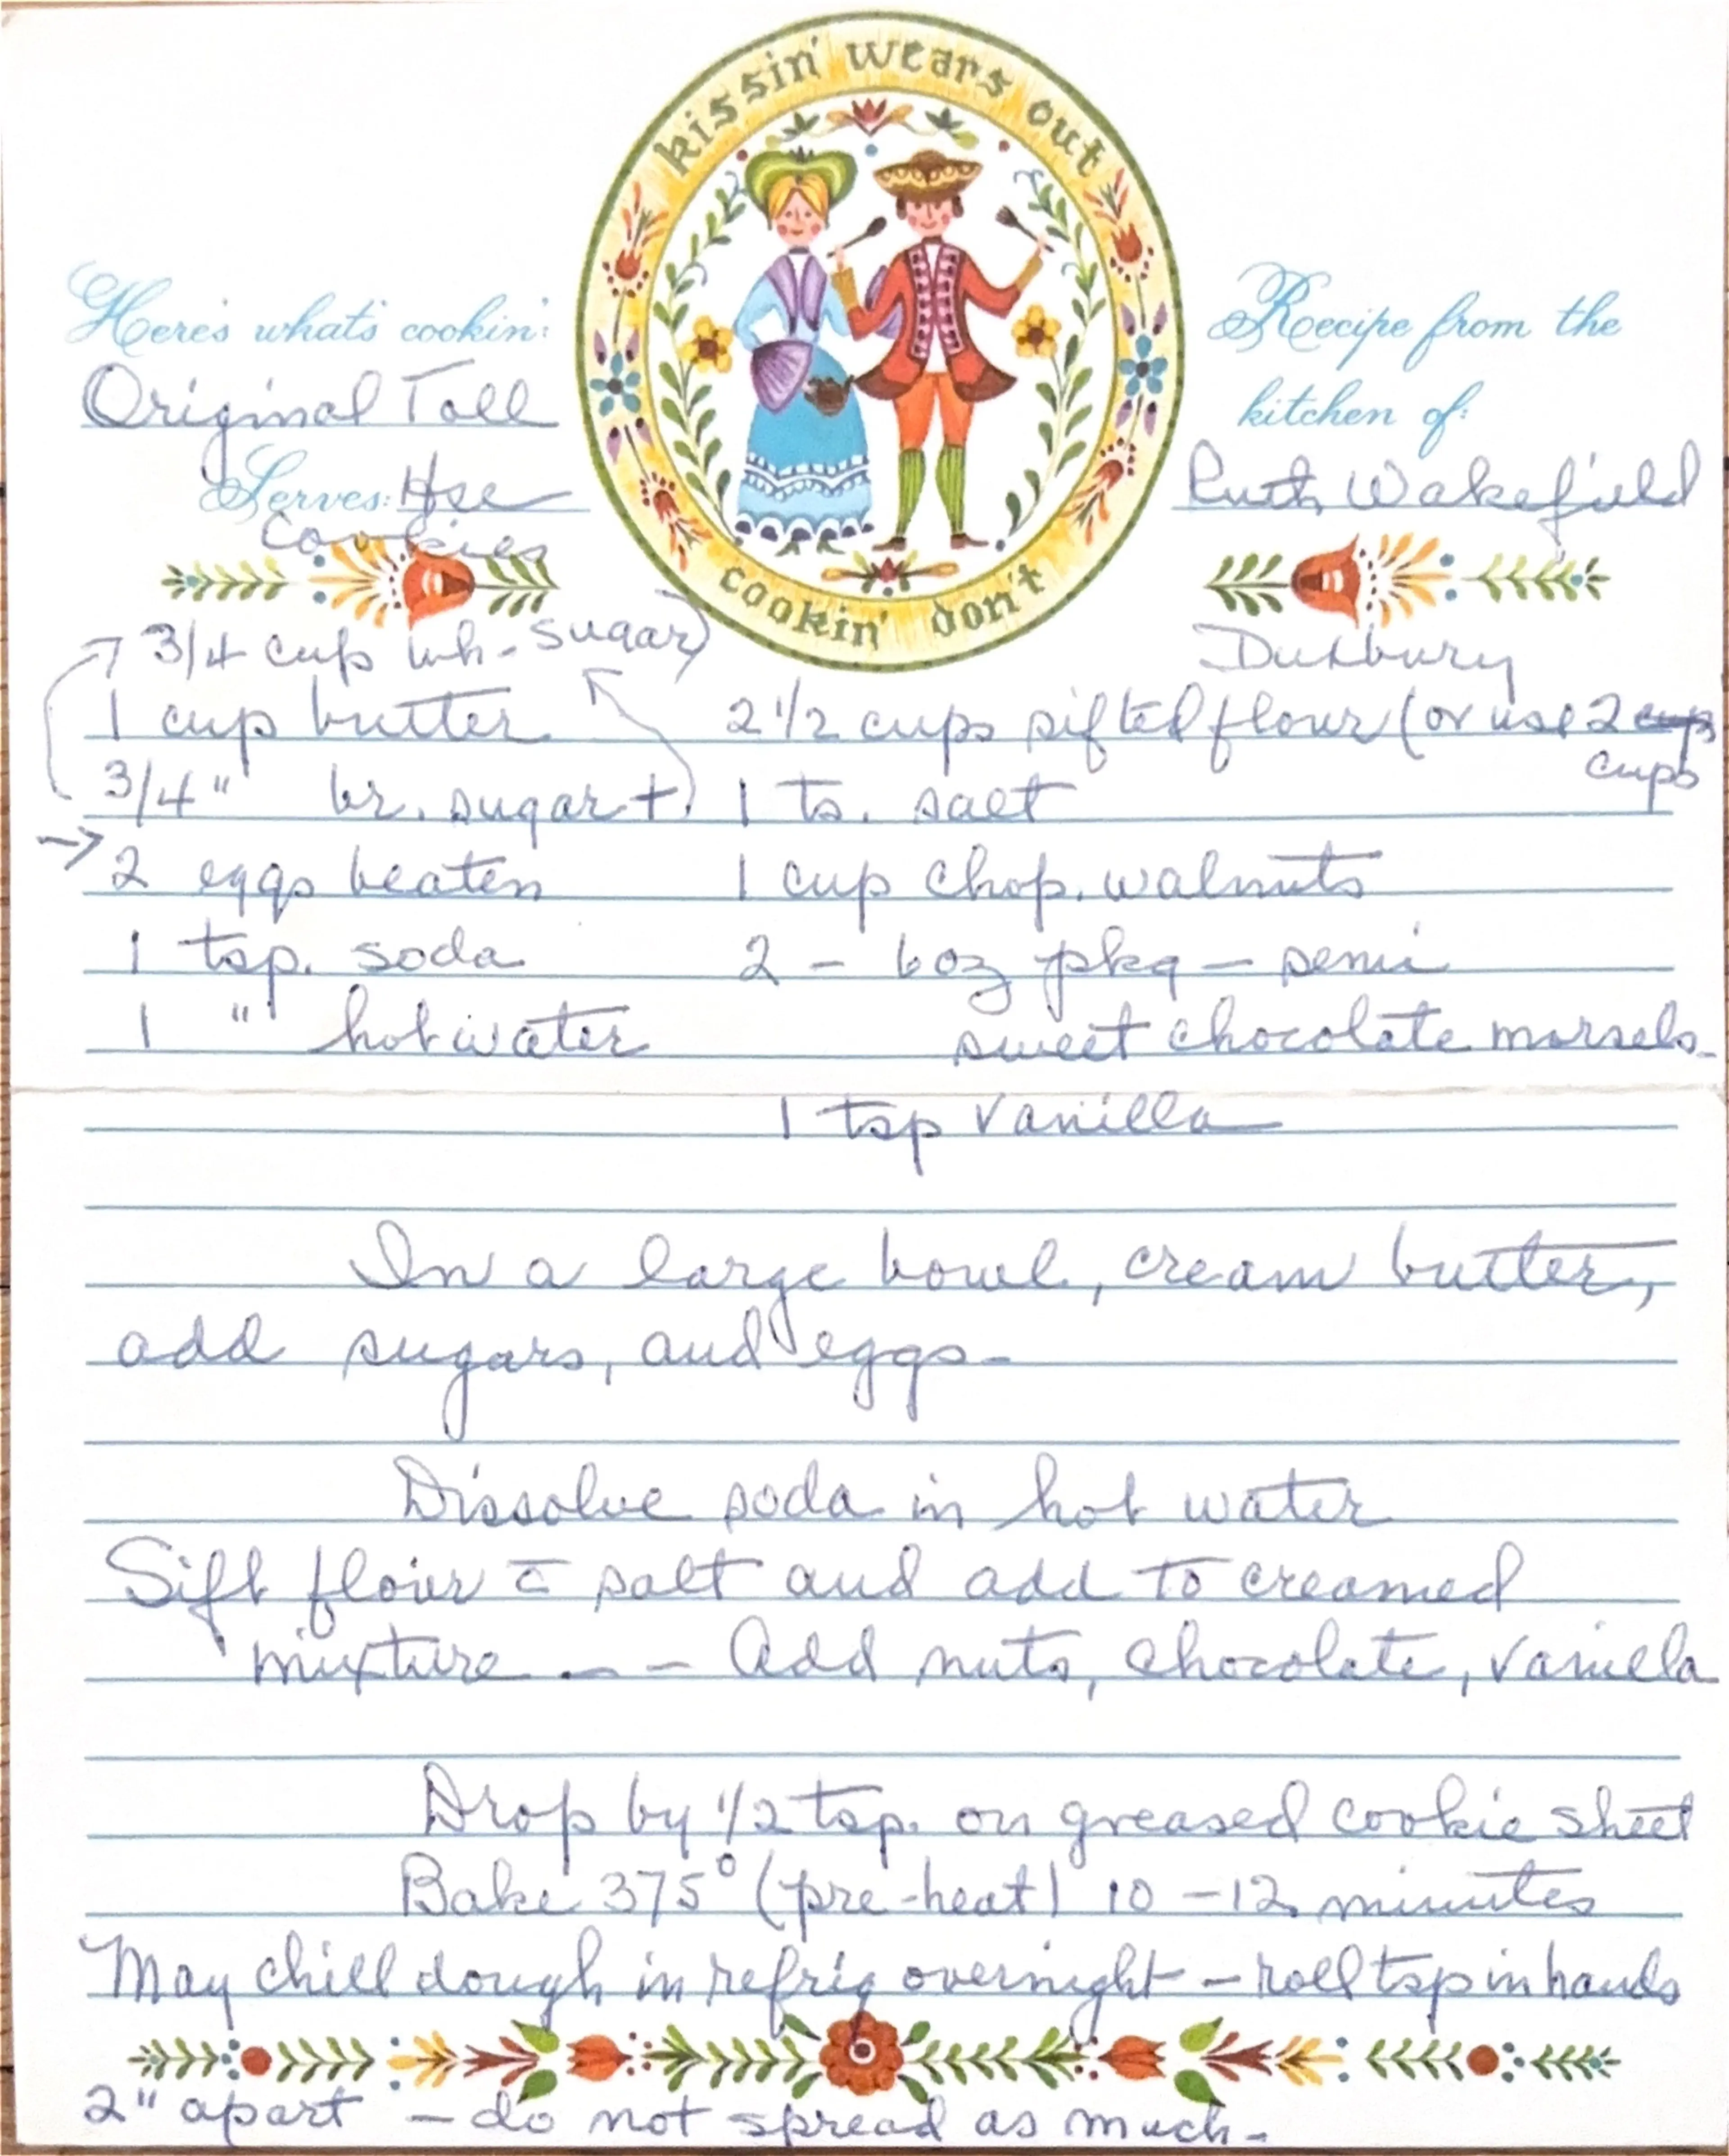 kissin' wears out
cookin' don't
Here's what's cookin':
Original Toll
Serves: Hse
Cookies
Recipe from the
kitchen of:
Ruth Wakefield
Duxbury
3/4 cup wh. sugar)
1 cup butter
3/4 " br. sugar +
→ 2 eggs beaten
1 tsp. soda
1 " hot water
2 1/2 cups sifted flour (or use 2 cups
cups
1 ts. salt
1 cup chop. walnuts
2 - 6 oz pkg - semi
sweet chocolate morsels.
1 tsp vanilla
In a large bowl, cream butter,
add sugars, and eggs-
Dissolve soda in hot water
Sift flour c̄ salt and add to creamed
mixture -- - Add nuts, chocolate, vanilla
Drop by 1/2 tsp. on greased cookie sheet
Bake 375° (pre-heat) 10-12 minutes
May chill dough in refrig overnight - roll tsp in hands
2" apart - do not spread as much-